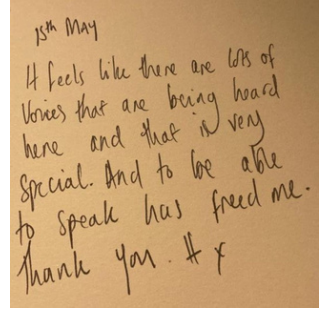 15th MAY
It feels like there are lots of
Voices that are being heard
here and that is very
Special. And to be able
to speak has freed me.
Thank you. H x